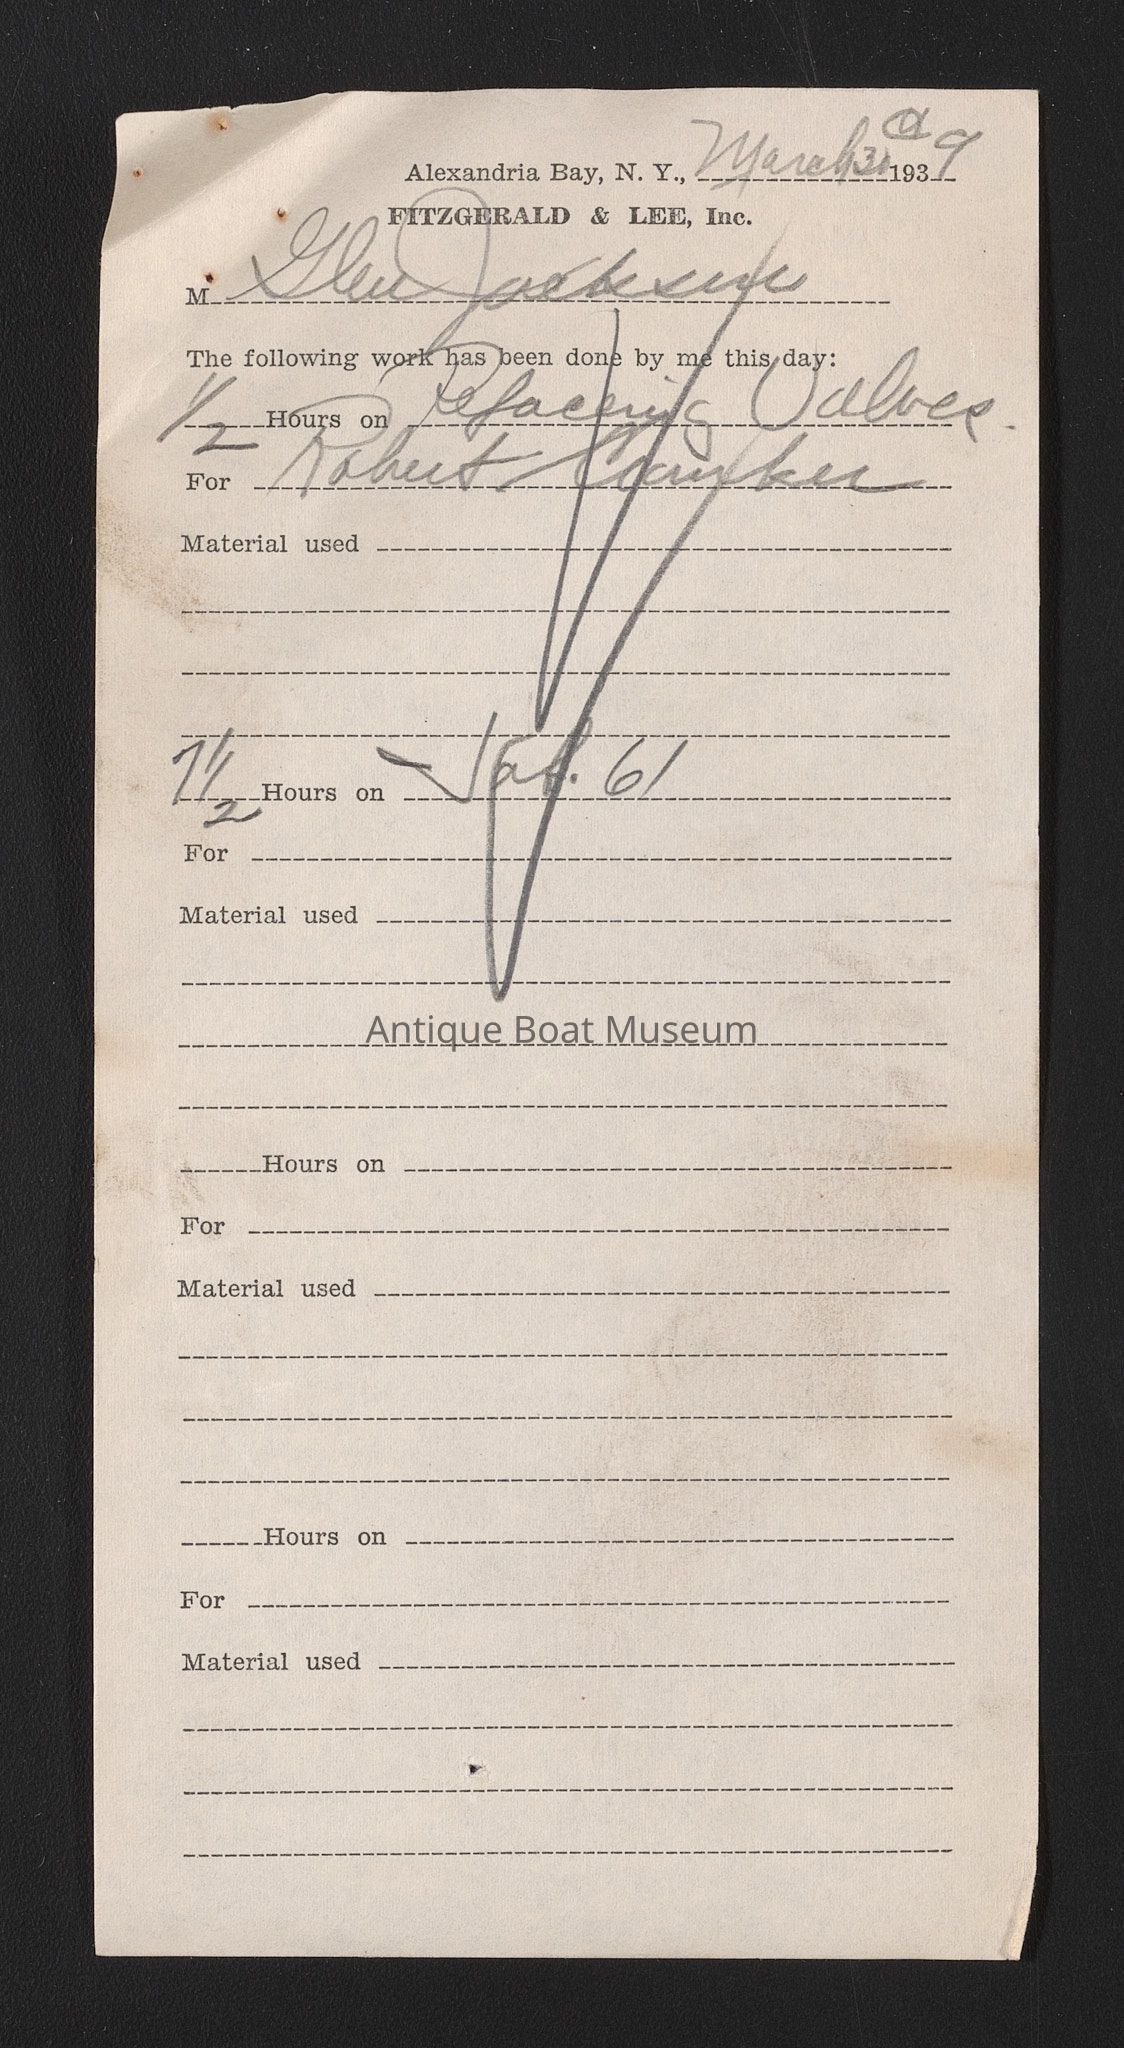 Alexandria Bay, N. Y., March 31 1939
FITZGERALD & LEE, Inc.
M Glen Jackson
The following work has been done by me this day:
1/2 Hours on Refacing Valves.
For Robert
Material used
7 1/2 Hours on Job. 61
For
Material used
Antique Boat Museum
Hours on
For
Material used
Hours on
For
Material used